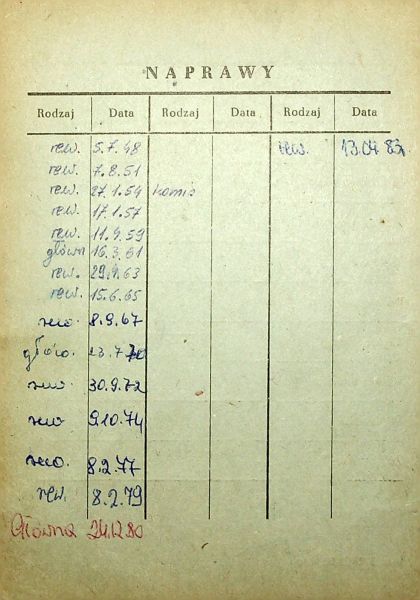 NAPRAWY
Rodzaj Data Rodzaj Data Rodzaj Data
rew. 5.7.48 rew. 13.04.83r.
rew. 7.8.51
rew. 27.1.54 komis
rew. 17.1.57
rew. 11.4.59
główn 16.3.61
rew. 29.1.63
rew. 15.6.65
rew. 8.9.67
główn. 23.7.70
rew 30.9.72
rew 9.10.74
rew. 8.2.77
rew. 8.2.79
Główna 24.12.80